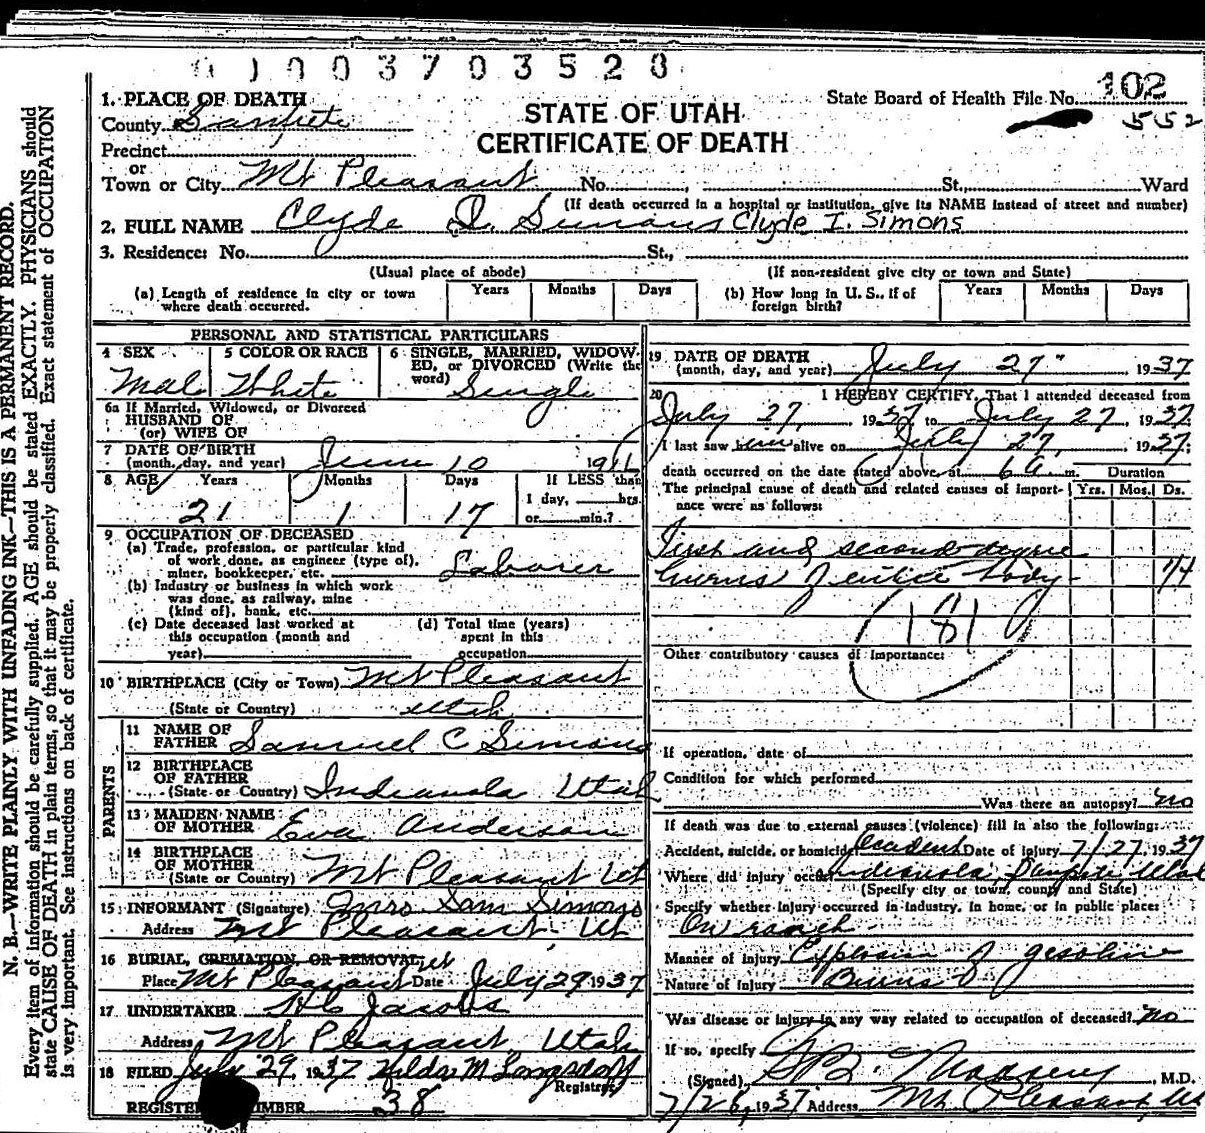 0100370352 0
1. PLACE OF DEATH
County Sanpete
STATE OF UTAH
CERTIFICATE OF DEATH
State Board of Health File No. 102
552
Precinct
or
Town or City Mt Pleasant No. , St., Ward
(If death occurred in a hospital or institution, give its NAME instead of street and number)
2. FULL NAME Clyde I. Simons Clyde I. Simons
3. Residence: No. St.,
(Usual place of abode) (If non-resident give city or town and State)
(a) Length of residence in city or town where death occurred. Years Months Days
(b) How long in U. S., if of foreign birth? Years Months Days
N. B.—WRITE PLAINLY WITH UNFADING INK—THIS IS A PERMANENT RECORD.
Every item of information should be carefully supplied. AGE should be stated EXACTLY. PHYSICIANS should
state CAUSE OF DEATH in plain terms, so that it may be properly classified. Exact statement of OCCUPATION
is very important. See instructions on back of certificate.
PERSONAL AND STATISTICAL PARTICULARS
4 SEX Male
5 COLOR OR RACE White
6 SINGLE, MARRIED, WIDOWED, or DIVORCED (Write the word) Single
6a If Married, Widowed, or Divorced
HUSBAND OF
(or) WIFE OF
7 DATE OF BIRTH
(month, day, and year) June 10 1916
8 AGE Years Months Days If LESS than
1 day, hrs.
21 1 17 or min.?
9 OCCUPATION OF DECEASED
(a) Trade, profession, or particular kind
of work done, as engineer (type of),
miner, bookkeeper, etc. Laborer
(b) Industry or business in which work
was done, as railway, mine
(kind of), bank, etc.
(c) Date deceased last worked at
this occupation (month and
year)
(d) Total time (years)
spent in this
occupation
10 BIRTHPLACE (City or Town) Mt Pleasant
(State or Country) Utah
PARENTS
11 NAME OF
FATHER Samuel C Simons
12 BIRTHPLACE
OF FATHER
(State or Country) Indianola Utah
13 MAIDEN NAME
OF MOTHER Eva Anderson
14 BIRTHPLACE
OF MOTHER
(State or Country) Mt Pleasant Ut
15 INFORMANT (Signature) Mrs Sam Simons
Address Mt Pleasant Ut
16 BURIAL, CREMATION, OR REMOVAL, Ut
Place Mt Pleasant Date July 29 1937
17 UNDERTAKER H C Jacobs
Address Mt Pleasant Utah
18 FILED July 29, 1937 Hilda M Longsdorf
Registrar
REGISTE MBER 38
19 DATE OF DEATH
(month, day, and year) July 27" 1937
20 I HEREBY CERTIFY, That I attended deceased from
July 27, 1937, to July 27, 1937.
I last saw him alive on July 27, 1937;
death occurred on the date stated above, at 6 a m. Duration
The principal cause of death and related causes of importance were as follows: Yrs. Mos. Ds.
First and second degree
burns of entire body 1/4
181
Other contributory causes of importance:
If operation, date of
Condition for which performed
Was there an autopsy? no
If death was due to external causes (violence) fill in also the following:
Accident, suicide, or homicide? Accident Date of injury 7/27, 1937
Where did injury occur? Indianola, Sanpete Utah
(Specify city or town, county and State)
Specify whether injury occurred in industry, in home, or in public place:
On ranch
Manner of injury Explosion of gasoline
Nature of injury Burns
Was disease or injury in any way related to occupation of deceased? no
If so, specify
(Signed) M.D.
7/28, 1937 Address Mt. Pleasant, Ut